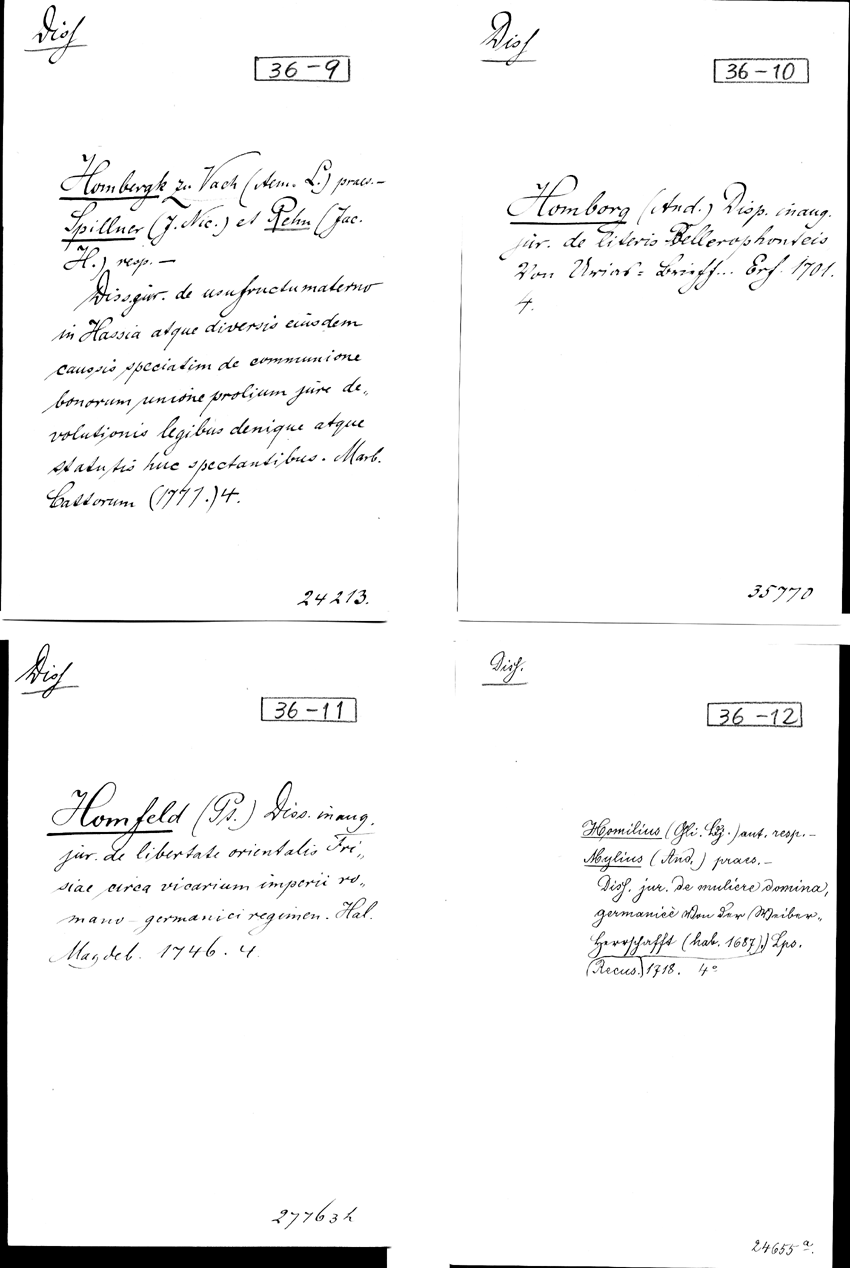 Diss
36-9
Hombergk zu Vach (Aem. L.) praes.-
Spillner (J. Nic.) et Rehn (Jac.
H.) resp. —
Diss. jur. de usufructu materno
in Hassia atque diversis eiusdem
caussis speciatim de communione
bonorum unione prolium jure de„
volutionis legibus denique atque
statutis huc spectantibus. Marb.
Cattorum (1777.) 4.
24213.
Diss
36-10
Homborg (And.) Disp. inaug.
jur. de literis Bellerophonteis
Von Urias= Brieff... Erf. 1701.
4.
35770
Diss
36-11
Homfeld (Ps.) Diss. inaug.
jur. de libertate orientalis Fri„
siae circa vicarium imperii ro„
mano-germanici regimen. Hal.
Magdeb. 1746. 4.
27763h
Diss.
36-12
Homilius (Gli. ) aut. resp. —
Mylius (And.) praes. —
Diss. jur. de muliere domina,
germanicè Von der Weiber„
Herrschafft (hab. 1687).) Lps.
(Recus.) 1718. 4°
24655 a.